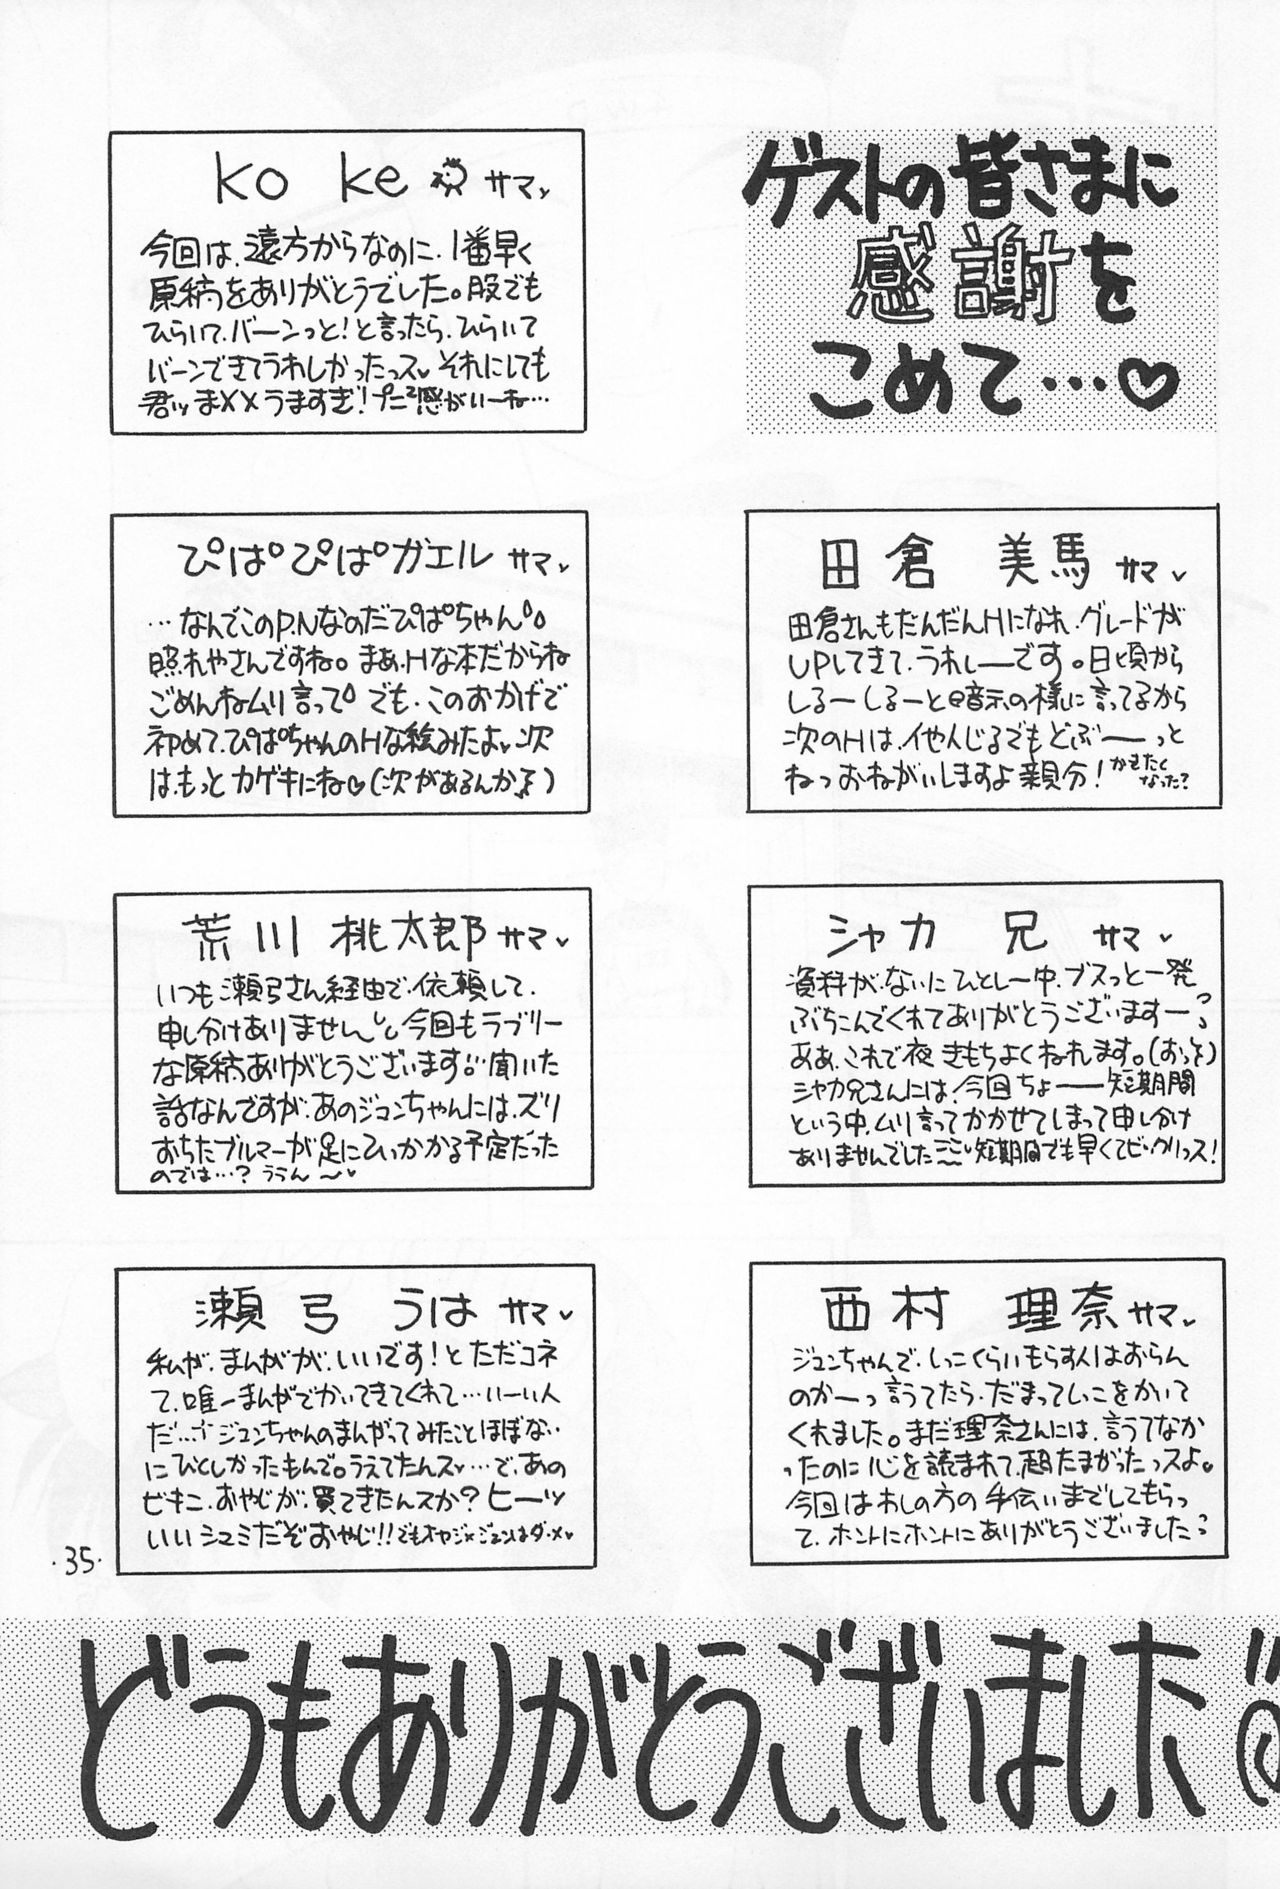 ゲストの皆さまに
感謝を
こめて…♡
ko ke サマ
今回は、遠方からなのに、1番早く
原稿をありがとうでした。股でも
ひらいて、バーンっと!と言ったら、ひらいて
バーンできてうれしかったっス それにしても
君ッ まXXうますぎ!プニプニ感がいーね…
田倉 美馬 サマ
田倉さんもだんだんHになれ、グレードが
UPしてきて、うれしーです。日頃から
しるーしるーと
次のHは、イヤんじるでもどぶーーっと
ねっおねがいしますよ親分!かきたく
なった?
ぴぱ°ぴぱ°ガエル サマ
…なんでこのP.Nなのだぴぱちゃん
照れやさんですね。まぁ、Hな本だからね
ごめんねムリ言って でも、このおかげで
初めて、ぴぱちゃんのHな絵みたよ 次
は、もっとカゲキにね♡(次があるんか)
シャカ 兄 サマ
資料が、ないにひとしー中、ブスっと一発
ぶちこんでくれてありがとうございますーっ
ああ、これで夜きもちよくねれます。(おっそ)
シャカ兄さんには、今回ちょーー短期間
という中、ムリ言ってかかせてしまって申し分け
ありませんでした 短期間でも早くてビックリっス!
荒川 桃太郎 サマ
いつも瀬弓さん経由で、依頼して、
申し分けありません 今回もラブリー
な原稿ありがとうございます 聞いた
話なんですが、あのジュンちゃんには、ズリ
おちたブルマーが足にひっかかる予定だった
のでは…?ううん〜
西村 理奈 サマ
ジュンちゃんで、しっこくらいもらす人はおらん
のかーっ言うてたら、だまってしっこをかいて
くれました。まだ理奈さんには、言うてなか
ったのに心を読まれて、超たまがったっスよ
今回はわしの方の手伝いまでしてもらっ
て、ホントにホントにありがとうございました
瀬弓 うは サマ
私が、まんがが、いいです!とただコネ
て、唯一まんがでかいてきてくれて…いーい人
だ… ジュンちゃんのまんがってみたことほぼない
にひとしかったもんで。うえてたんス…で、あの
ビキニ、おやじが、買てきたんスか?ヒーッ
いいシュミだぞおやじ!!でもオヤジ×ジュンはダ・メ
·35·
どうもありがとうございました